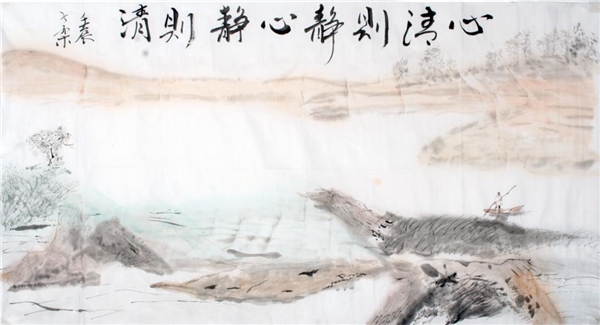 心清则静心静则清
壬辰